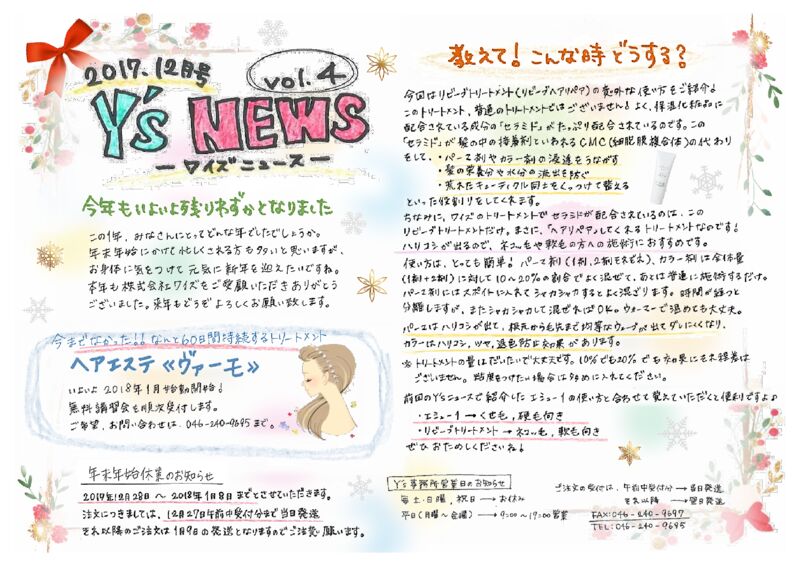 2017.12月号
vol.4
Y's NEWS
ーワイズニュースー
今年もいよいよ残りわずかとなりました
この1年、みなさんにとってどんな年でしたでしょうか。
年末年始にかけて忙しくされる方も多いと思いますが、
お身体に気をつけて元気に新年を迎えたいですね。
本年も株式会社ワイズをご愛顧いただきありがとう
ございました。来年もどうぞよろしくお願い致します。
今までなかった!! なんと60日間持続するトリートメント
ヘアエステ≪ヴァーモ≫
いよいよ2018年1月始動開始!
無料講習会も順次受付します。
ご希望、お問い合わせは 046-240-9695まで。
年末年始休業のお知らせ
2017年12月28日〜2018年1月8日までとさせていただきます。
注文につきましては、12月27日午前中受付分まで当日発送
それ以降のご注文は1月9日の発送となりますのでご注意願います。
教えて!こんな時どうする?
今回はリピーブトリートメント(リピーブヘアリペア)の意外な使い方もご紹介♪
このトリートメント、普通のトリートメントではございません!よく、保湿化粧品に
配合されている成分の「セラミド」がたっぷり配合されているのです。この
「セラミド」が髪の中の接着剤といわれるCMC(細胞膜複合体)の代わり
をして、・パーマ剤やカラー剤の浸透をうながす
・髪の栄養分や水分の流出を防ぐ
・荒れたキューティクル同士をくっつけて整える
といった役割りをしてくれます。
ちなみに、ワイズのトリートメントでセラミドが配合されているのは、この
リピーブトリートメントだけ。まさに、「ヘアリペア」してくれるトリートメントなのです!
ハリコシが出るので、ネコッ毛や軟毛の方への施術におすすめです。
使い方は、とっても簡単! パーマ剤(1剤、2剤それぞれ)、カラー剤は全体量
(1剤+2剤)に対して10〜20%の割合でよく混ぜて、あとは普通に施術するだけ。
パーマ剤にはスポイトに入れてシャカシャカするとよく混ざります。時間が経つと
分離しますが、またシャカシャカして混ぜればOK。ウォーマーで温めても大丈夫。
パーマはハリコシが出て、根元から毛先まで均等なウェーブが出てダレにくくなり、
カラーはハリコシ、ツヤ、退色防止効果があります。
※トリートメントの量はだいたいで大丈夫です。10%でも20%でも効果にそれ程差は
ございません。粘度をつけたい場合は多めに入れてください。
前回のY'sニュースで紹介したエミュー1の使い方と合わせて覚えていただくと便利ですよ♪
・エミュー1→くせ毛、硬毛向き
・リピーブトリートメント→ネコッ毛、軟毛向き
ぜひおためしくださいね!
Y's事務所営業日のお知らせ
毎土・日曜、祝日→お休み
平日(月曜〜金曜)→9:00〜17:00営業
ご注文の受付は、午前中受付分→当日発送
それ以降→翌日発送
FAX:046-240-9697
TEL:046-240-9695